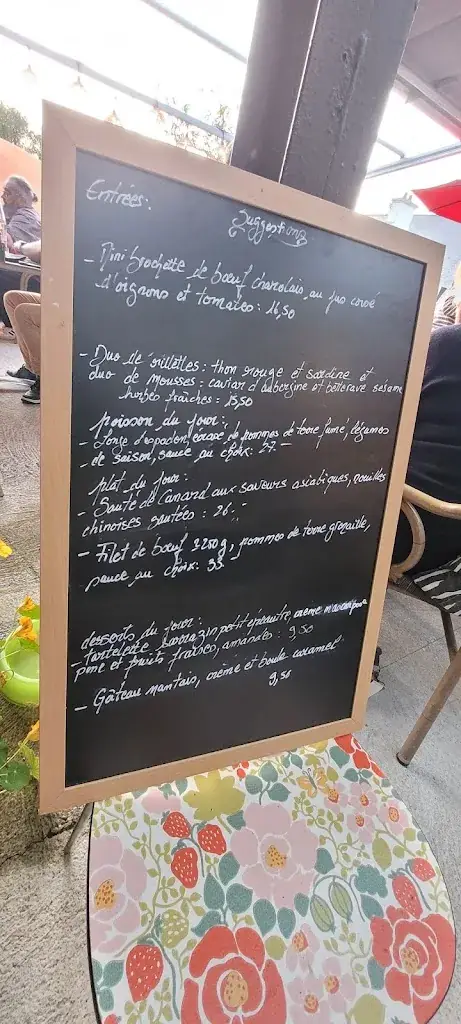 Entrées:
Suggestions
- Mini brochette de bœuf charolais, au jus corsé
d'oignons et tomates: 16,50
- Duo de rillettes: thon rouge et sardine et
duo de mousses: caviar d'aubergine et betterave sésame
herbes fraîches: 15,50
poisson du jour:
- Longe d'espadon, écrasé de pommes de terre fumé, légumes
de saison, sauce au choix: 27.-
plat du jour:
- Sauté de canard aux saveurs asiatiques, nouilles
chinoises sautées: 26.-
- Filet de bœuf 250g, pommes de terre grenaille,
sauce au choix: 33
desserts du jour:
- tartelette sarrazin petit épeautre, crème mascar
pone et fruits fraises, amandes: 9,50
- Gâteau nantais, crème et boule caramel:
9,50